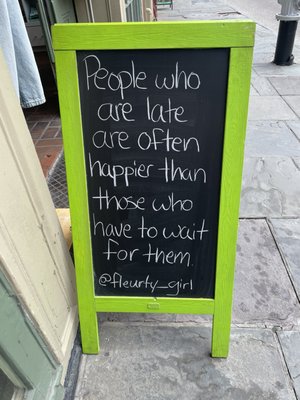 People who
are late
are often
happier than
those who
have to wait
for them.
@fleurty_girl